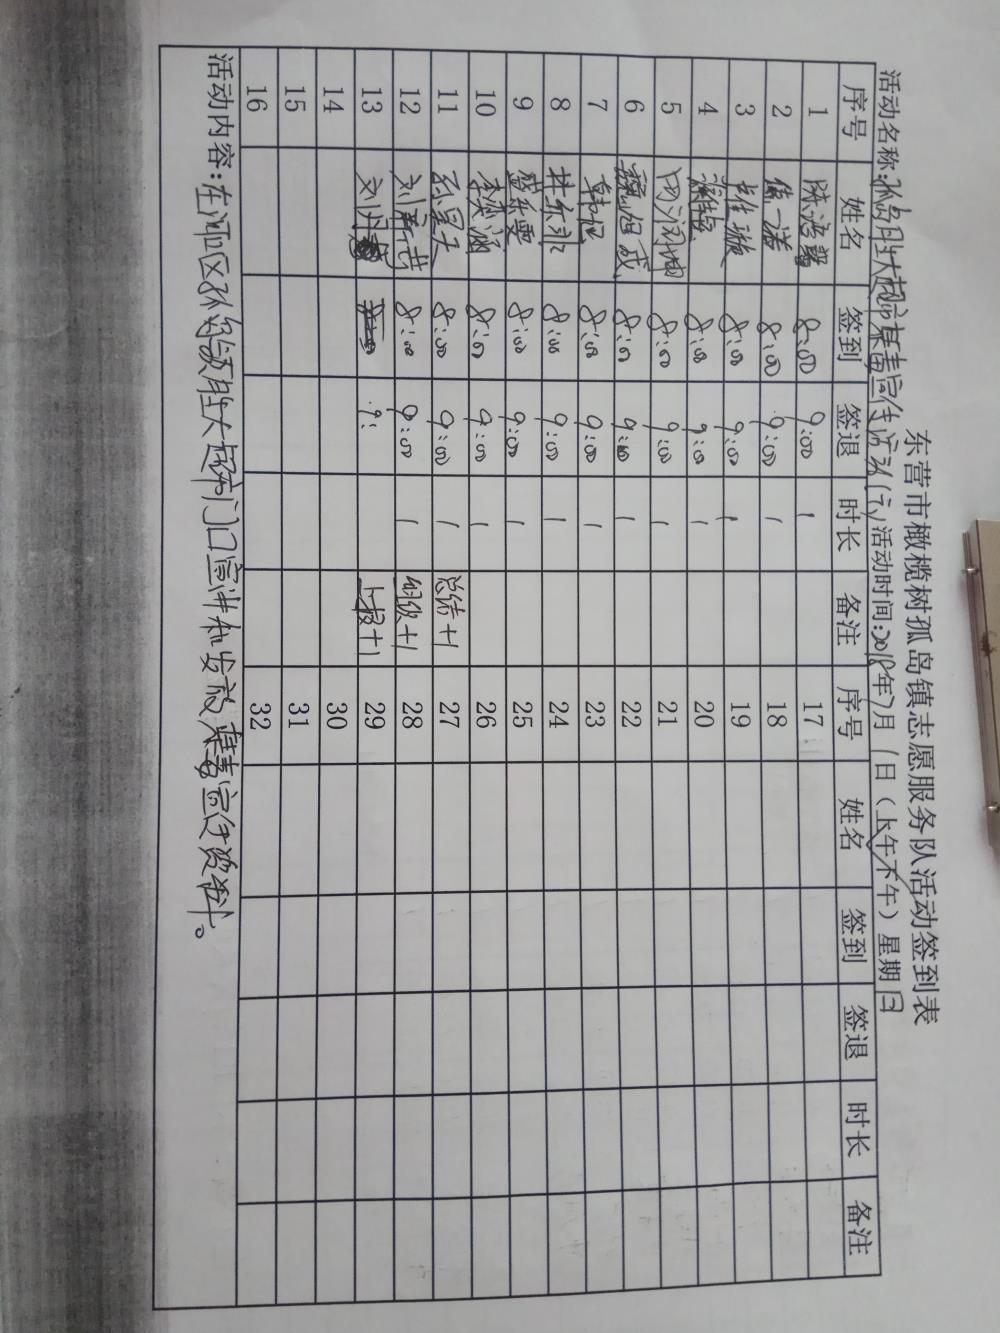 东营市橄榄树孤岛镇志愿服务队活动签到表
活动名称:孤岛胜大超市禁毒宣传活动 活动时间:2018年7月1日(上午下午)星期日
序号 姓名 签到 签退 时长 备注 序号 姓名 签到 签退 时长 备注
1 8:00 9:00 1 17
2 焦一诺 8:00 9:00 1 18
3 崔璇 8:00 9:00 1 19
4 8:00 9:00 1 20
5 田润坤 8:00 9:00 1 21
6 魏旭成 8:00 9:00 1 22
7 韩旭 8:00 9:00 1 23
8 8:00 9:00 1 24
9 盛乐雯 8:00 9:00 1 25
10 李奕涵 8:00 9:00 1 26
11 孙昊天 8:00 9:00 1 总结+1 27
12 刘 8:00 9:00 1 +1 28
13 刘 9: 上报+1 29
14 30
15 31
16 32
活动内容:在河口区孤岛镇胜大超市门口宣讲和发放禁毒宣传资料。